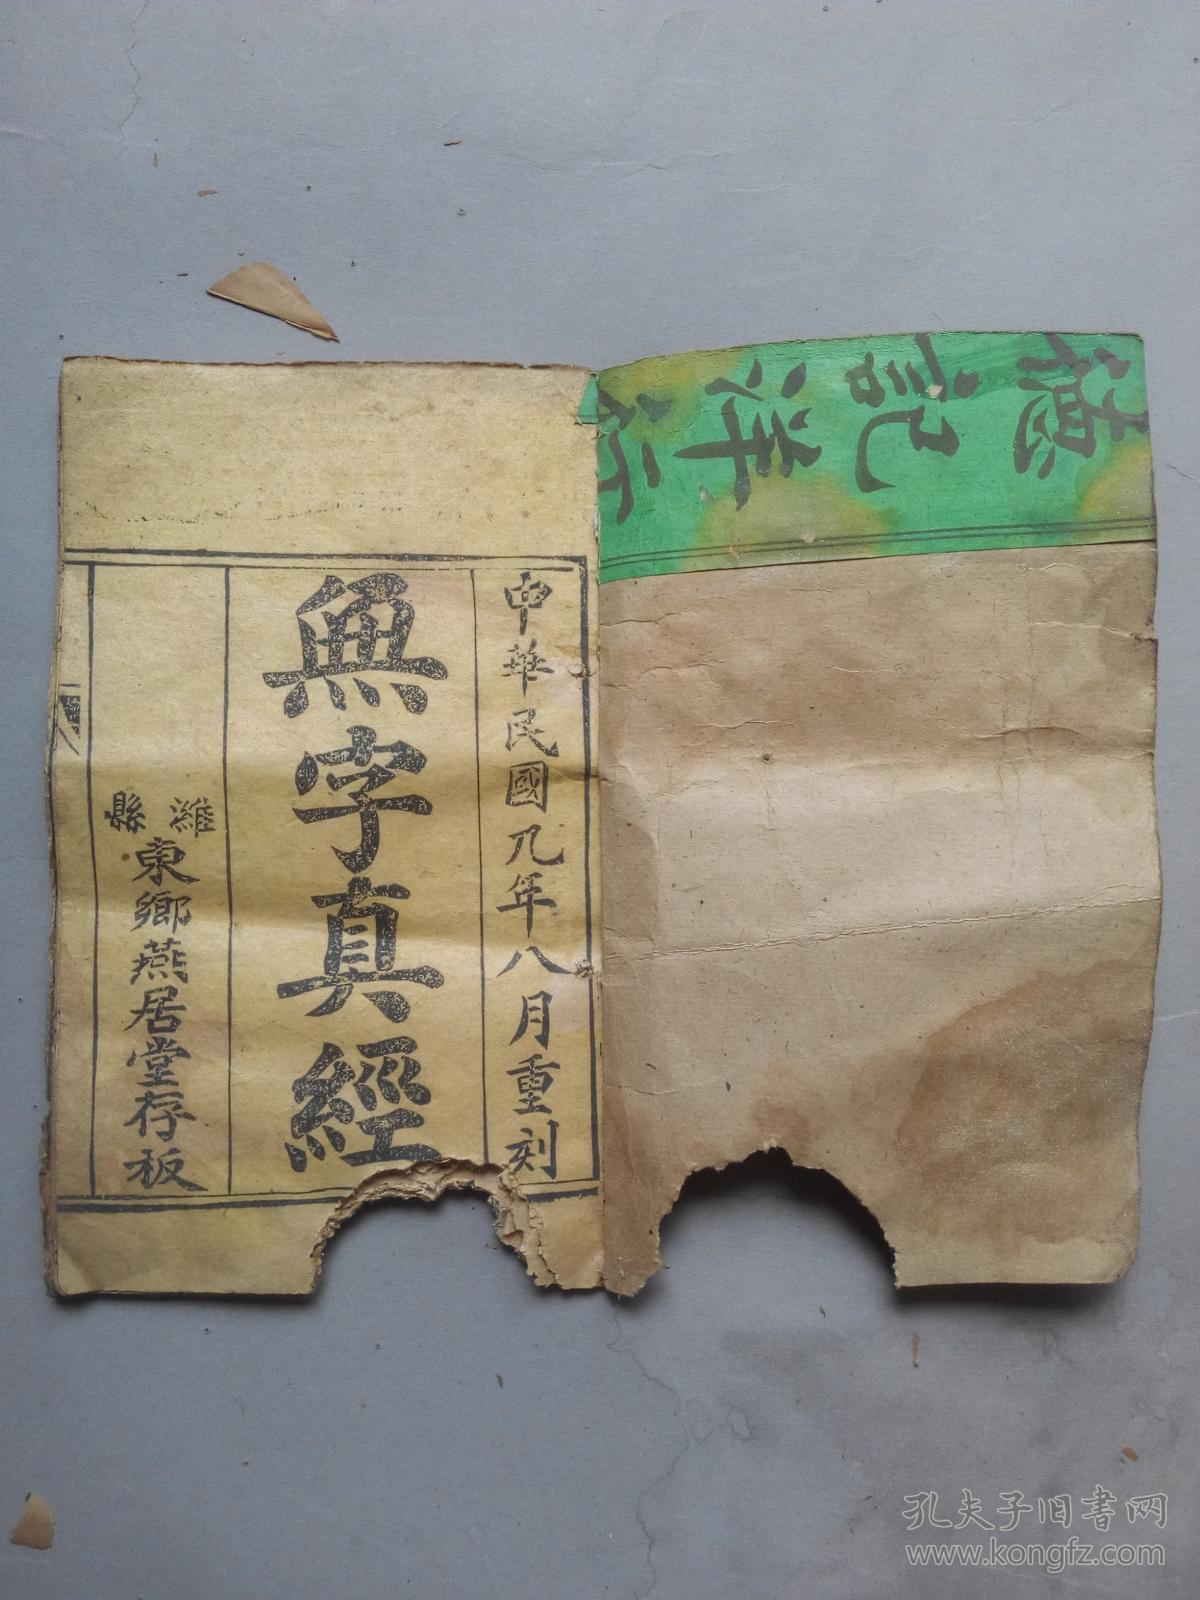 德記洋行
中華民國九年八月重刻
無字真經
濰縣東鄉燕居堂存板
孔夫子旧書网
www.kongfz.com